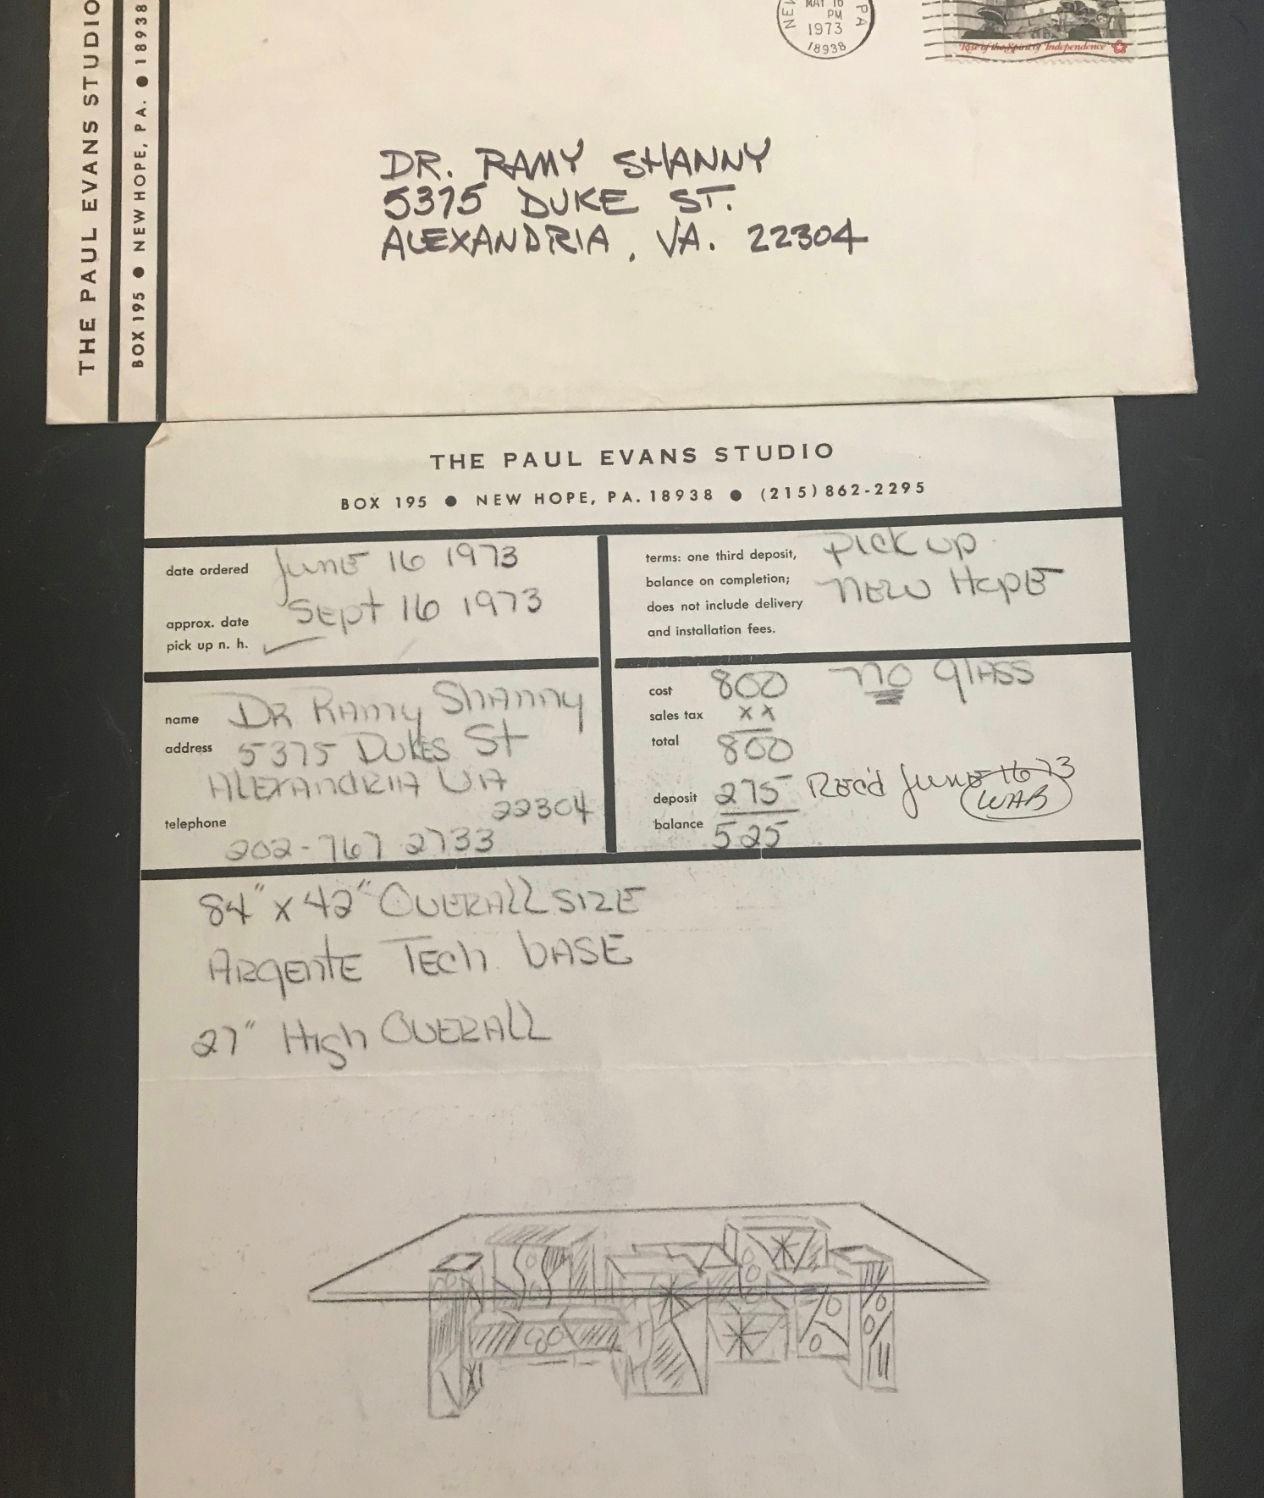 THE PAUL EVANS STUDIO
BOX 195 ● NEW HOPE, PA. ● 18938
MAY 16
PM
1973
18938
PA
Rise of the Spirit of Independence
DR. RAMY SHANNY
5375 DUKE ST.
ALEXANDRIA, VA. 22304
THE PAUL EVANS STUDIO
BOX 195 ● NEW HOPE, PA. 18938 ● (215) 862-2295
date ordered June 16 1973
approx. date Sept 16 1973
pick up n. h. ✓
terms: one third deposit, Pick up
balance on completion; New Hope
does not include delivery
and installation fees.
name DR RAMY SHANNY
address 5375 DUKES St
ALEXANDRIA VA
22304
telephone
202-767 2733
cost 800 no glass
sales tax xx
total 800
deposit 275 Rec'd June 16 73
WAB
balance 525
84" x 42" OVERALL SIZE
ARGENTE TECH. BASE
27" High OVERALL